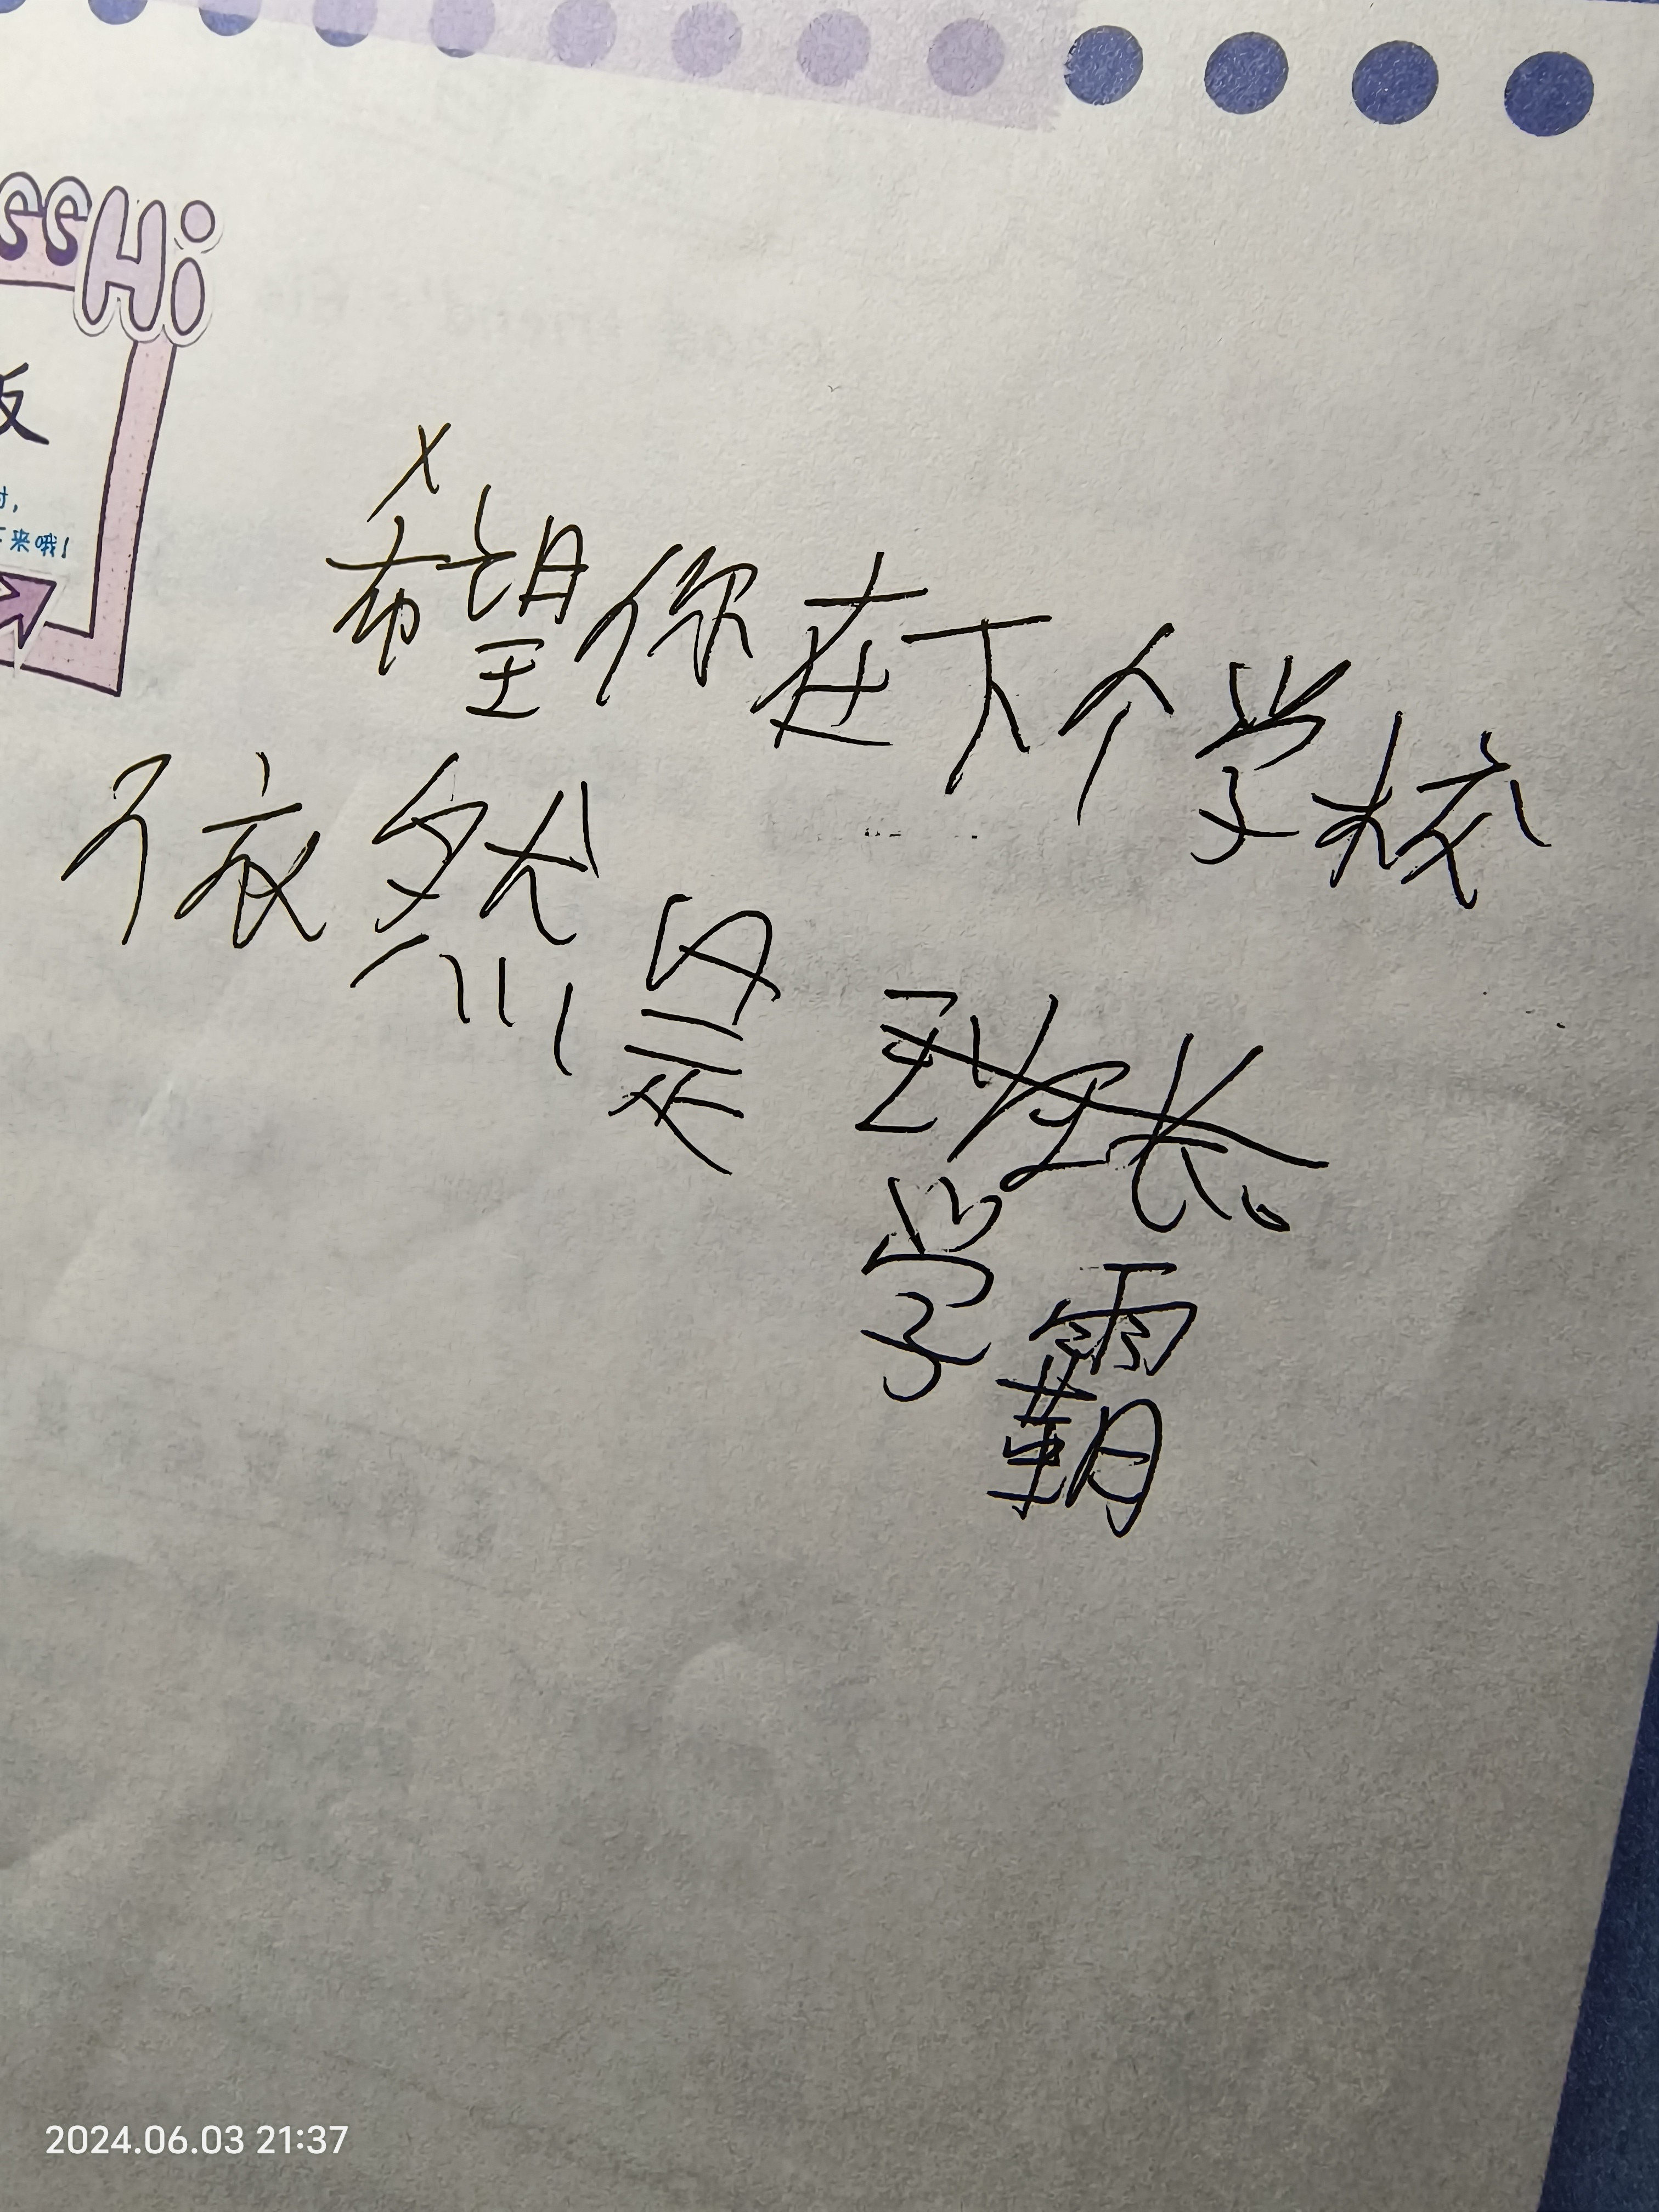 Hi
反
来哦!
希望你在下个学校
依然是班长。
学霸
2024.06.03 21:37